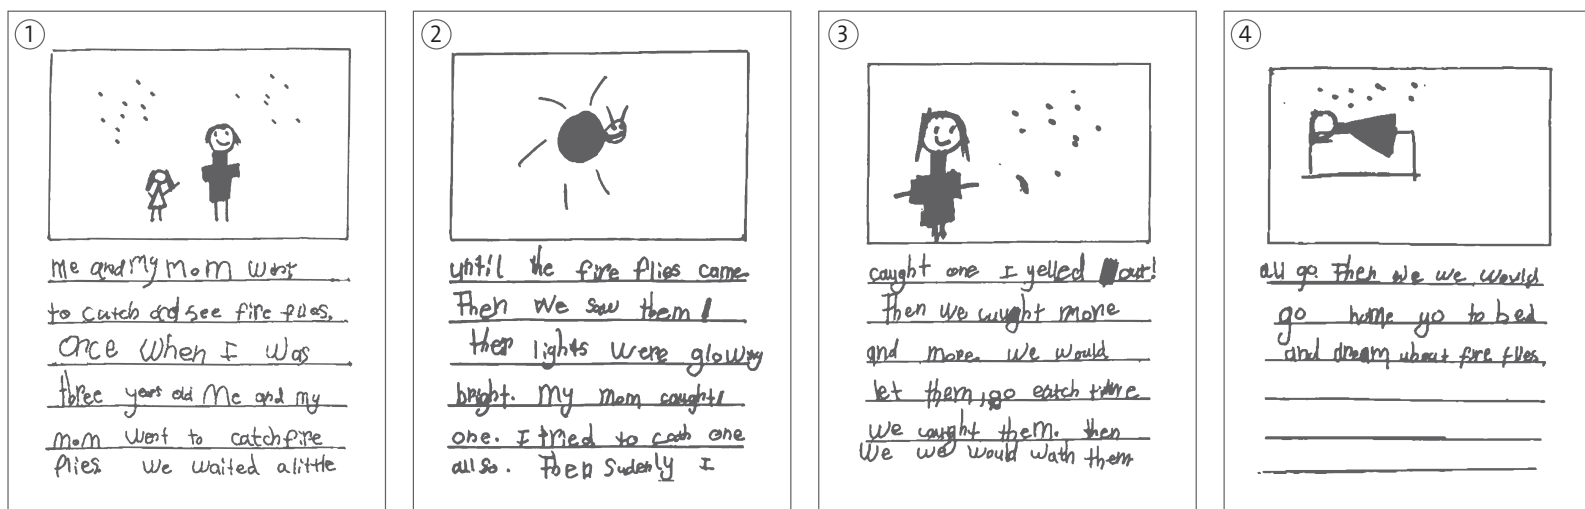 1
me and my mom went
to catch and see fire flies.
once when I was
three years old Me and my
mom went to catch fire
flies. we waited a little
2
until the fire flies came
Then we saw them!
ther lights were glowing
bright. My mom caught
one. I tried to one
allso. Then Sudenly I
3
caught one I yelled out!
Then we cught more
and more. we would
let them, go eatch time
We caught them. then
We we would wath them
4
all go. Then we we would
go home go to bed
and dream about fire flies.